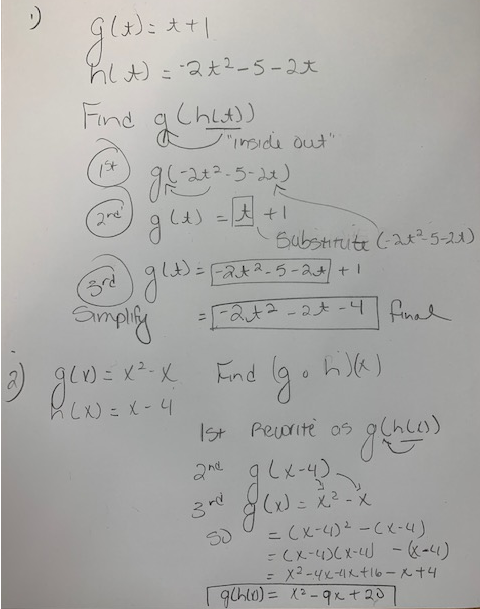 1) g(t) = t+1
h(t) = -2t²-5-2t
Find g(h(t))
"inside out"
1st g(-2t²-5-2t)
2nd g(t) = t +1
Substitute (-2t²-5-2t)
3rd g(t) = -2t²-5-2t + 1
Simplify = -2t² - 2t - 4 final
2) g(x) = x²-x Find (g∘h)(x)
h(x) = x-4
1st Rewrite as g(h(x))
2nd g(x-4)
3rd g(x) = x² - x
SO = (x-4)² - (x-4)
= (x-4)(x-4) - (x-4)
= x²-4x-4x+16 - x+4
g(h(x)) = x² - 9x + 20